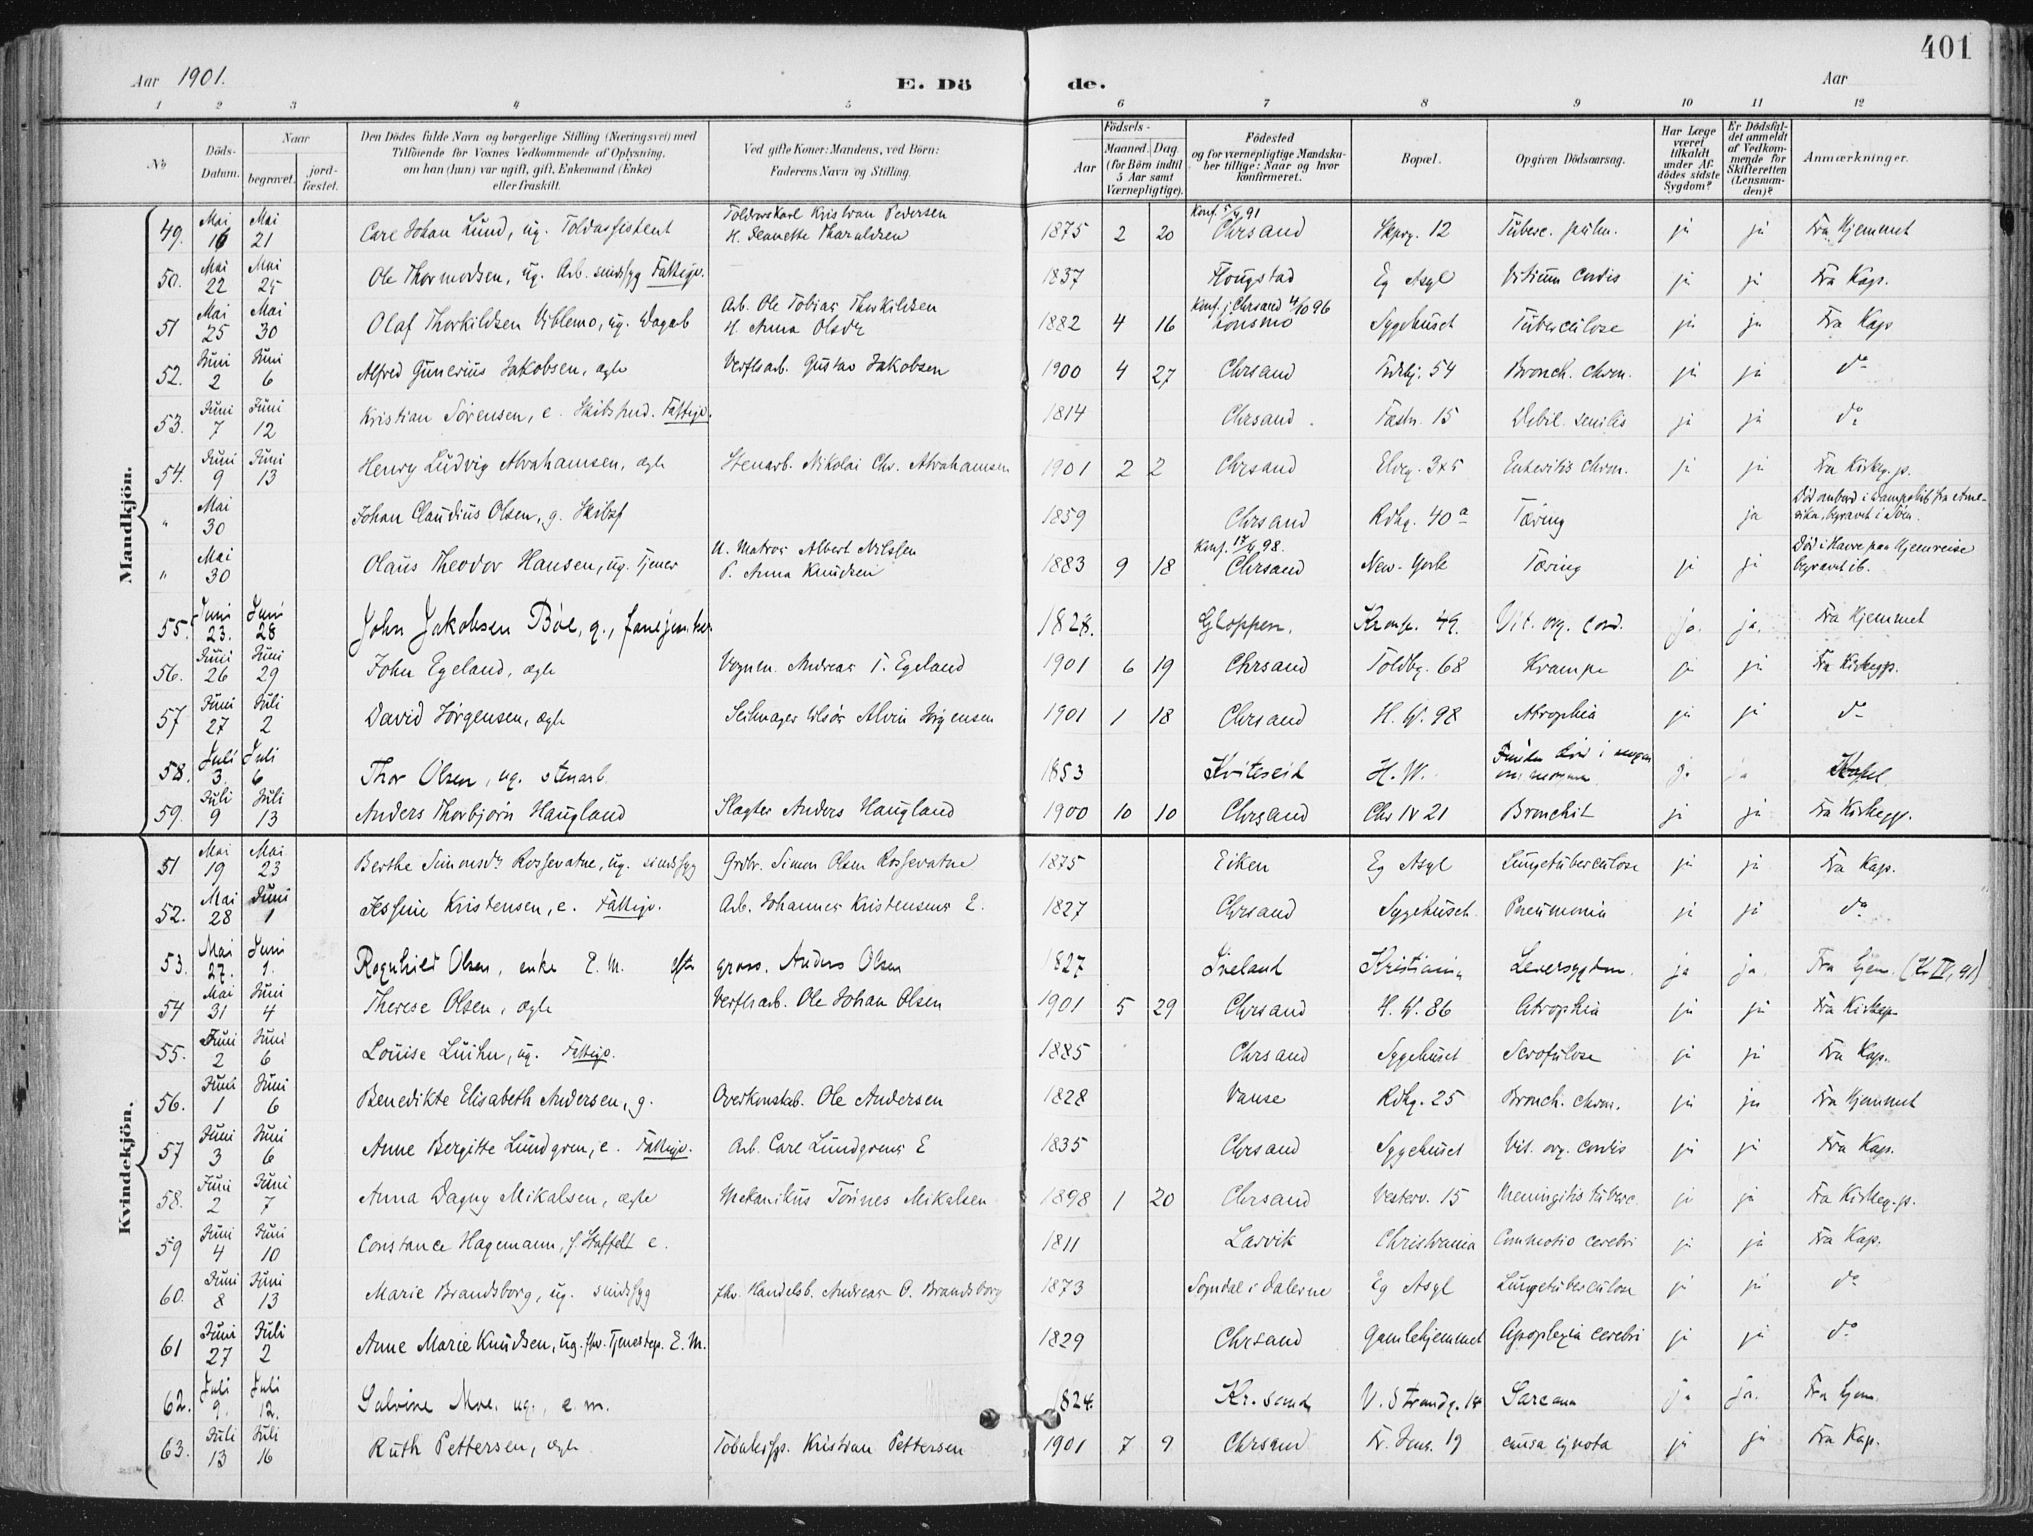 401
Aar 1901.
E. Dö de.
Aar
1 2 3 4 5 6 7 8 9 10 11 12
No
Döds-Datum.
Naar
begravet.
jord-fæstet.
Den Dödes fulde Navn og borgerlige Stilling (Næringsvei) med
Tilföiende for Voxnes Vedkommende af Oplysning,
om han (hun) var ugift, gift, Enkemand (Enke)
eller fraskilt.
Ved gifte Koner: Mandens, ved Börn:
Faderens Navn og Stilling.
Födsels-
Aar
Maaned. Dag.
(for Börn indtil
5 Aar samt
Værnepligtige).
Födested
og for værnepligtige Mandska-
ber tillige: Naar og hvor
konfirmeret.
Bopæl.
Opgiven Dödsaarsag.
Har Læge
været
tilkaldt
under Af-
dödes sidste
Sygdom?
Er Dödsfal-
det anmeldt
af Vedkom-
mende for
Skifteretten
(Lensman-
den)?
Anmærkninger.
Mandkjön.
49. Mai 16 Mai 21 Carl Johan Lund, ug. Toldassistent Kristian Pedersen H. Jeanette Tharaldsen 1875 2 20 Konf. 91 Chrsand 12 Tuberc. pulm. ja ja Fra Hjemmet
50. Mai 22 Mai 25 Ole Thormodsen, ug. Arb. sindssyg Fattigv. 1837 Eg Asyl Vitium cordis ja ja Fra Kap.
51 Mai 25 Mai 30 Olaf Thorkildsen Ublemo, ug. Dagarb Arb. Ole Tobias Thorkildsen H. Anna Olsdr 1882 4 16 Konf. i Chrsand 4/10 96 Konsmo Sygehuset Tuberculose ja ja Fra Kap
52. Juni 2 Juni 6 Alfred Gunerius Jakobsen, ægte Verftsarb. Gustav Jakobsen 1900 4 27 Chrsand 54 Bronch. chron. ja ja do
53. Juni 7 Juni 12 Kristian Sörensen, e. Fattigv. 1814 Chrsand. Fæstn. 15 Debil. senilis ja ja do
54. Juni 9 Juni 13 Henry Ludvig Abrahamsen, ægte Stenarb. Nikolai Chr. Abrahamsen 1901 2 2 Chrsand Elveg. Enteritis chron. ja ja Fra Kirkeg.p.
" Mai 30 Johan Claudius Olsen, g. 1859 Chrsand Rdhg. 40 a Tæring ja Död ombord i Dampskib fra Ame-
rika, begravet i Söen.
" Mai 30 Olaus Theodor Hansen, ug. Tjener U. Matros Albert Nilssen P. Anna Knudsen 1883 9 18 Konf. 98. Chrsand New-York Tæring ja ja Död i Havre paa Hjemreise
begravet ib.
55. Juni 23. Juni 28 John Jakobsen Böe, g., 1828. Gloppen. 49. Vit. org. cord. ja. ja. Fra Hjemmet
56. Juni 26 Juni 29 John Egeland, ægte Vognm. Andreas T. Egeland 1901 6 19 Chrsand Toldbg. 68 Krampe ja ja Fra Kirkegp.
57 Juni 27 Juli 2 David Jörgensen, ægte Seilmager Alvin Jörgensen 1901 1 18 Chrsand H. W. 98 Atrophia ja ja do
58. Juli 3. Juli 6 Thor Olsen, ug. stenarb. 1853 Kviteseid H. W. Funden död i ja ja Kapel
59. Juli 9 Juli 13 Anders Thorbjörn Haugland Slagter Anders Haugland 1900 10 10 Chrsand Chr IV 21 Bronchit ja ja Fra Kirkegp.
Kvindekjön.
51 Mai 19 Mai 23 Berthe Simonsdr Rossevatne, ug. sindssyg Grdbr. Simon Olsen Rossevatne 1875 Eiken Eg Asyl Lungetuberculose ja ja Fra Kap.
52. Mai 28 Juni 1 Jessine Kristensen, e. Fattigv. Arb. Johannes Kristensens E. 1827 Chrsand Sygehuset Pneumonia ja ja do
53. Mai 27. Juni 1. Ragnhild Olsen, enke E. M. efter gross. Anders Olsen 1827 Iveland Kristiania Leversygdom. ja ja Fra hjem.
54 Mai 31 Juni 4 Therese Olsen, ægte Verftsarb. Ole Johan Olsen 1901 5 29 Chrsand H. W. 86 Atrophia ja ja Fra Kirkegp
55. Juni 2 Juni 6 Louise Luihn, ug. Fattigv. 1885 Chrsand Sygehuset Scrofulose ja ja Fra Kap.
56. Juni 1 Juni 6 Benedikte Elisabeth Andersen, g. Overkonstab. Ole Andersen 1828 Vanse Rdhg. 25 Bronch. chron. ja ja Fra Hjemmet
57 Juni 3 Juni 6 Anne Bergitte Lundgren, e. Fattigv. Arb. Carl Lundgrens E 1835 Chrsand Sygehuset Vit. org. cordis ja ja Fra Kap.
58. Juni 2 Juni 7 Anna Dagny Mikalsen, ægte Mekanikus Tönnes Mikalsen 1898 1 20 Chrsand Vesterv. 15 Meningitis tuberc. ja ja Fra Kirkeg.p.
59 Juni 4 Juni 10 Constance Hagemann, f. Staffelt e. 1811 Larvik Christiania Commotio cerebri ja ja Fra Kap.
60. Juni 8 Juni 13 Marie Brandsborg, ug. sindssyg fhv. Handelsb. Andreas O. Brandsborg 1873 Sogndal i Dalerne Eg Asyl Lungetuberculose ja ja do
61 Juni 27 Juli 2 Anne Marie Knudsen, ug. fhv. Tjenestep. E. M. 1829 Chrsand Gamlehjemmet Apoplexia cerebri ja ja do
62. Juli 9. Juli 12. Salvine Moe. ug., e. m. 1824. Kr.sand V. Strandg. 14 Sarcom ja ja. Fra hjem.
63. Juli 13 Juli 16 Ruth Pettersen, ægte Kristian Pettersen 1901 7 9 Chrsand 19 causa ignota ja ja Fra Kap.